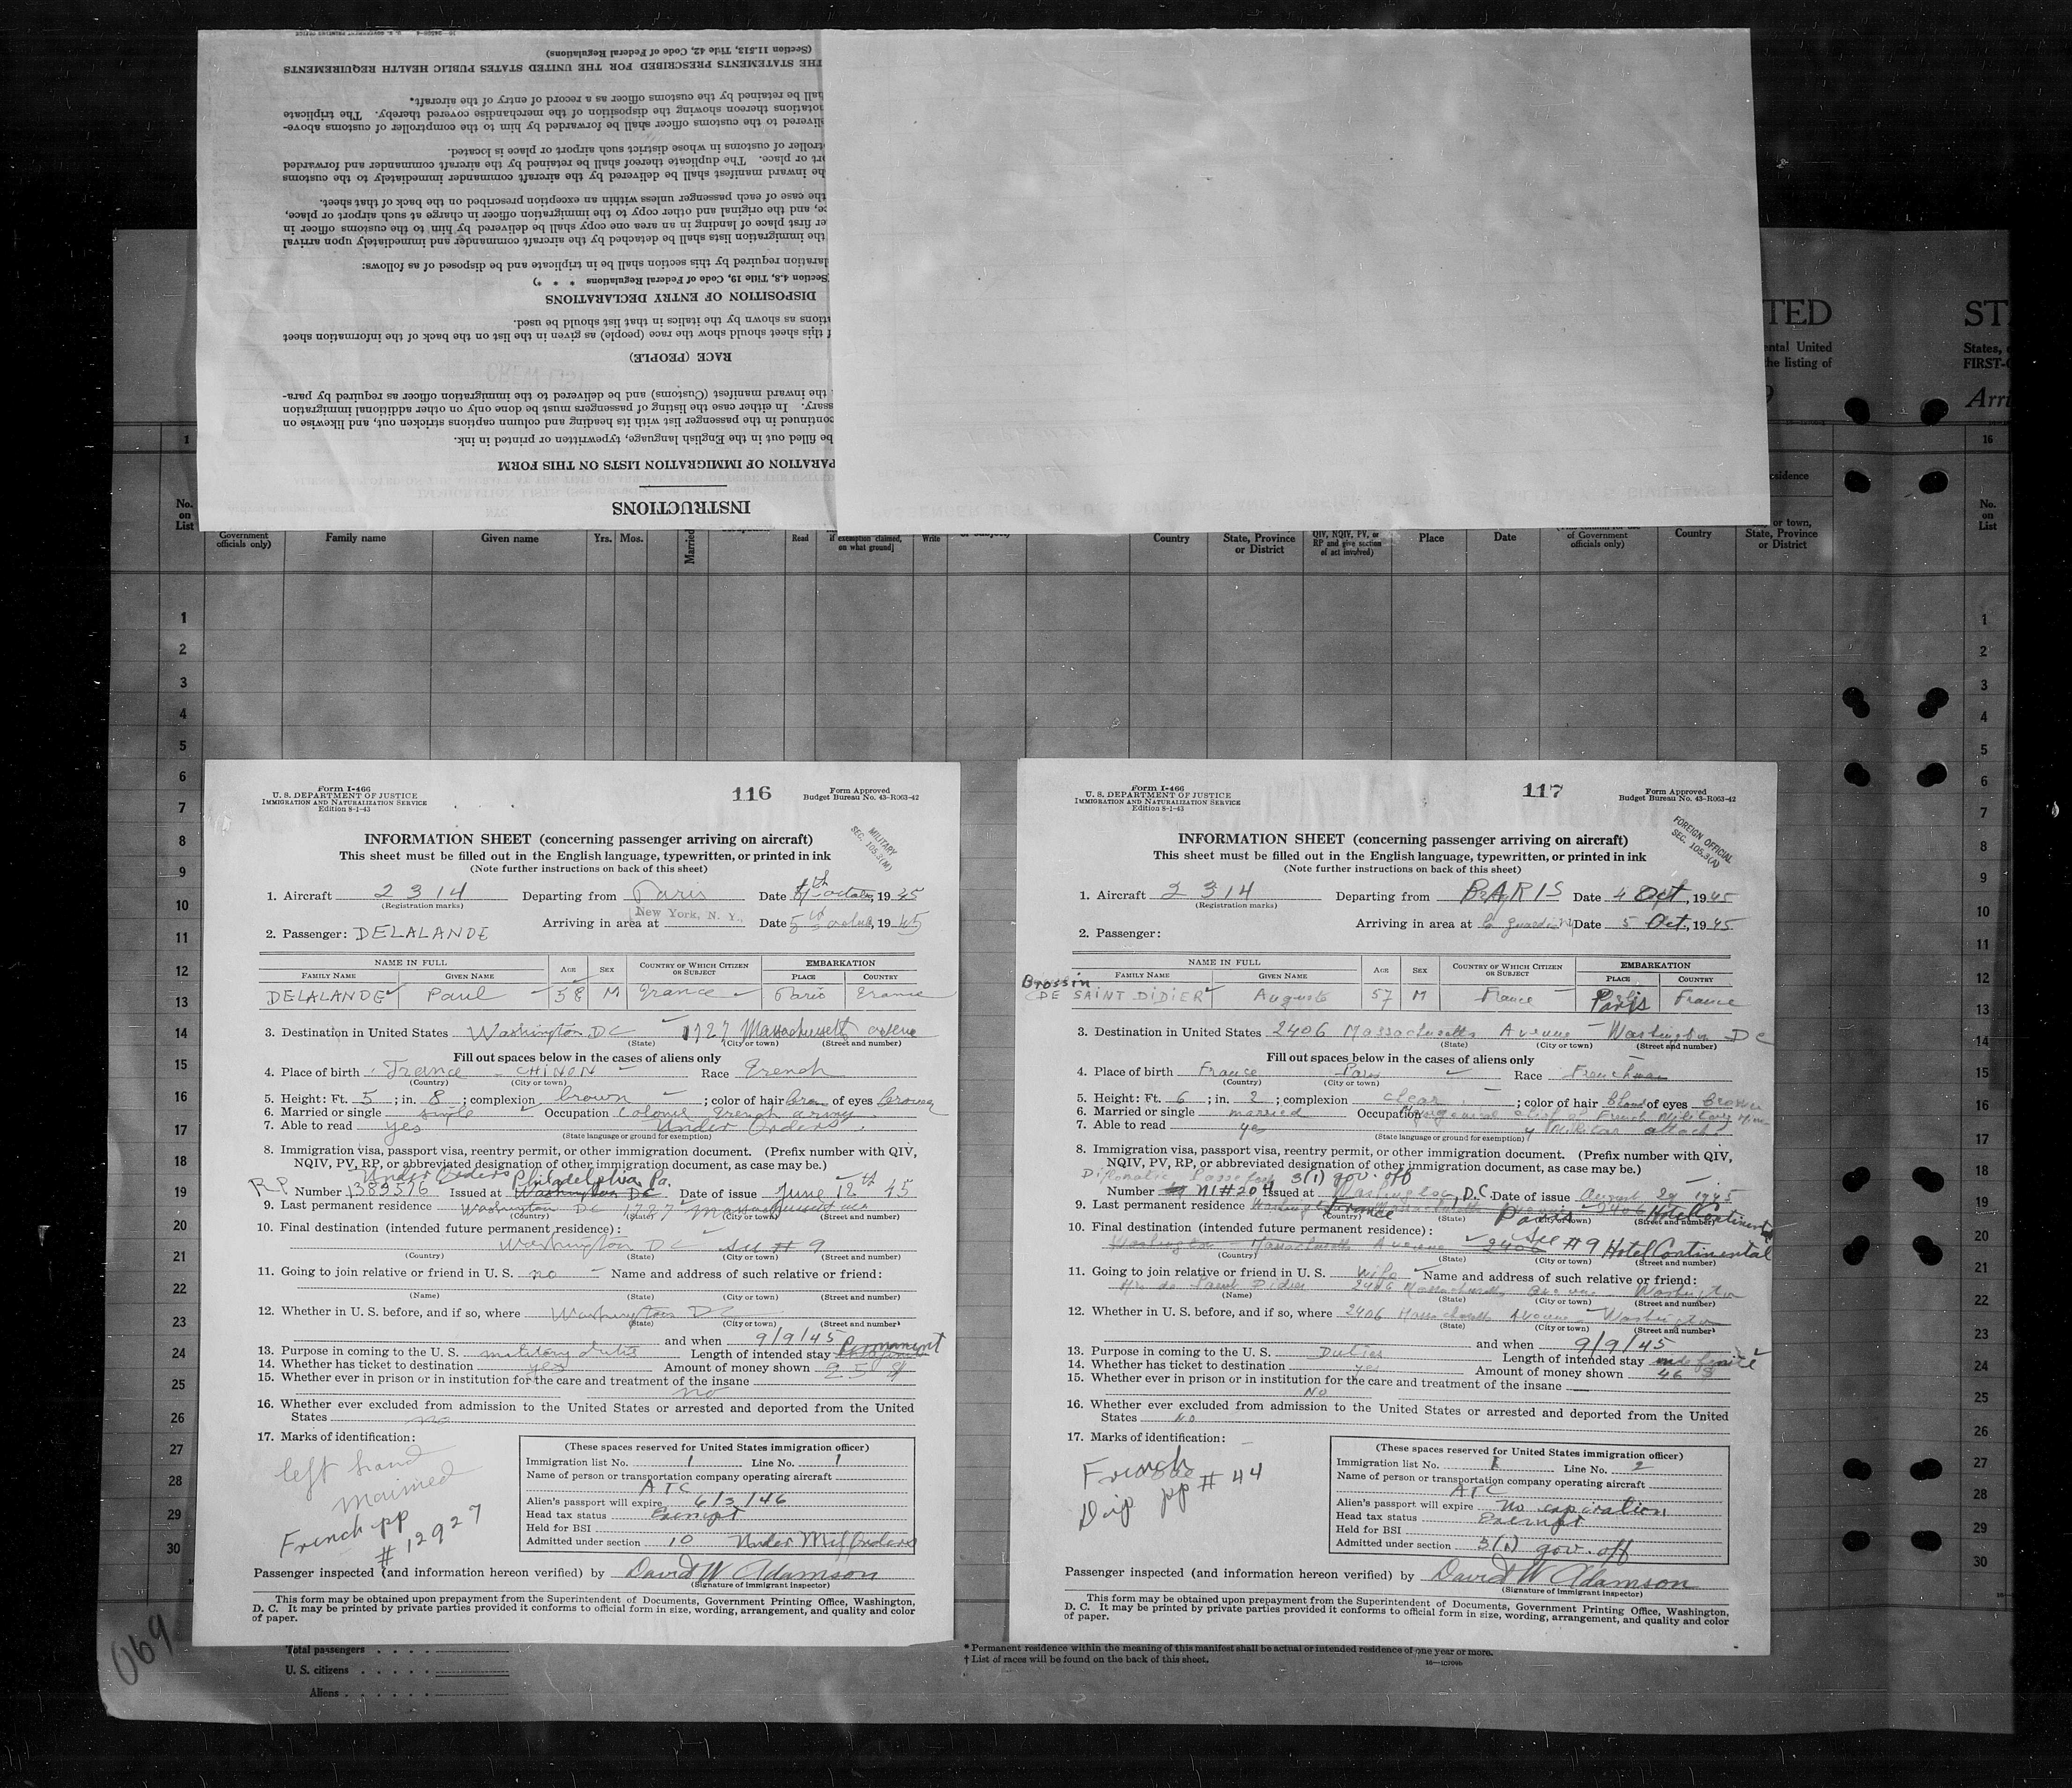 INSTRUCTIONS
PARATION OF IMMIGRATION LISTS ON THIS FORM
be filled out in the English language, typewritten or printed in ink.
continued in the passenger list with its heading and column captions stricken out, and likewise on
ssary. In either case the listing of passengers must be done only on other additional immigration
the inward manifest (Customs) and be delivered to the immigration officer as required by para-
RACE (PEOPLE)
f this sheet should show the race (people) as given in the list on the back of the information sheet
ations as shown by the italics in that list should be used.
DISPOSITION OF ENTRY DECLARATIONS
Section 4.8, Title 19, Code of Federal Regulations * * *)
laration required by this section shall be in triplicate and be disposed of as follows:
the immigration lists shall be detached by the aircraft commander and immediately upon arrival
er first place of landing in an area one copy shall be delivered by him to the customs officer in
ce, and the original and other copy to the immigration officer in charge at such airport or place,
the case of each passenger unless within an exception prescribed on the back of that sheet.
he inward manifest shall be delivered by the aircraft commander immediately to the customs
ort or place. The duplicate thereof shall be retained by the aircraft commander and forwarded
troller of customs in whose district such airport or place is located.
livered to the customs officer shall be forwarded by him to the comptroller of customs above-
notations thereon showing the disposition of the merchandise covered thereby. The triplicate
hall be retained by the customs officer as a record of entry of the aircraft.
THE STATEMENTS PRESCRIBED FOR THE UNITED STATES PUBLIC HEALTH REQUIREMENTS
(Section 11.513, Title 42, Code of Federal Regulations)
TED
ental United
he listing of
ST
States,
FIRST-
Arri
1
16
No. on List
Government officials only)
Family name
Given name
Yrs.
Mos.
Married
Read
if exemption claimed, on what ground]
Write
Country
State, Province or District
QIV, NQIV, PV, or RP and give section of act involved)
Place
Date
of Government officials only)
Country
or town, State, Province or District
No. on List
1
2
3
4
5
6
7
8
9
10
11
12
13
14
15
16
17
18
19
20
21
22
23
24
25
26
27
28
29
30
Form I-466
U. S. DEPARTMENT OF JUSTICE
IMMIGRATION AND NATURALIZATION SERVICE
Edition 8-1-43
116
Form Approved
Budget Bureau No. 43-R063-42
MILITARY
SEC. 105.3(M)
INFORMATION SHEET (concerning passenger arriving on aircraft)
This sheet must be filled out in the English language, typewritten, or printed in ink
(Note further instructions on back of this sheet)
1. Aircraft 2314 Departing from Paris Date 4th october, 1945
(Registration marks)
Arriving in area at New York, N. Y., Date 5th october, 1945
2. Passenger: DELALANDE
NAME IN FULL AGE SEX COUNTRY OF WHICH CITIZEN OR SUBJECT EMBARKATION
FAMILY NAME GIVEN NAME PLACE COUNTRY
DELALANDE Paul 58 M France Paris France
3. Destination in United States Washington DC 1727 Massachusetts avenue
(State) (City or town) (Street and number)
Fill out spaces below in the cases of aliens only
4. Place of birth France - CHINON Race French
(Country) (City or town)
5. Height: Ft. 5 ; in. 8 ; complexion brown ; color of hair brown of eyes brown
6. Married or single single Occupation Colonel French army
7. Able to read yes Under Orders
(State language or ground for exemption)
8. Immigration visa, passport visa, reentry permit, or other immigration document. (Prefix number with QIV,
NQIV, PV, RP, or abbreviated designation of other immigration document, as case may be.)
Under Orders Philadelphia, Pa.
RP Number 1389516 Issued at Washington DC Date of issue June 12th 45
9. Last permanent residence Washington DC 1727 Massachusetts
(Country) (State) (City or town) (Street and number)
10. Final destination (intended future permanent residence):
Washington DC See # 9
(Country) (State) (City or town) (Street and number)
11. Going to join relative or friend in U. S. no Name and address of such relative or friend:
(Name) (State) (City or town) (Street and number)
12. Whether in U. S. before, and if so, where Washington DC
(State) (City or town) (Street and number)
and when 9/9/45
13. Purpose in coming to the U. S. military duties Length of intended stay Permanent
14. Whether has ticket to destination yes Amount of money shown 25 $
15. Whether ever in prison or in institution for the care and treatment of the insane
no
16. Whether ever excluded from admission to the United States or arrested and deported from the United
States no
17. Marks of identification:
left hand
maimed
French pp
# 12927
(These spaces reserved for United States immigration officer)
Immigration list No. 1 Line No. 1
Name of person or transportation company operating aircraft
ATC
Alien's passport will expire 6/3/46
Head tax status Exempt
Held for BSI
Admitted under section 10 Under Mil Orders
Passenger inspected (and information hereon verified) by David W Adamson
(Signature of immigrant inspector)
This form may be obtained upon prepayment from the Superintendent of Documents, Government Printing Office, Washington,
D. C. It may be printed by private parties provided it conforms to official form in size, wording, arrangement, and quality and color
of paper.
Form I-466
U. S. DEPARTMENT OF JUSTICE
IMMIGRATION AND NATURALIZATION SERVICE
Edition 8-1-43
117
Form Approved
Budget Bureau No. 43-R063-42
FOREIGN OFFICIAL
SEC. 105.3(A)
INFORMATION SHEET (concerning passenger arriving on aircraft)
This sheet must be filled out in the English language, typewritten, or printed in ink
(Note further instructions on back of this sheet)
1. Aircraft 2314 Departing from PARIS Date 4 Oct, 1945
(Registration marks)
Arriving in area at La guardia Date 5 Oct, 1945
2. Passenger:
NAME IN FULL AGE SEX COUNTRY OF WHICH CITIZEN OR SUBJECT EMBARKATION
FAMILY NAME GIVEN NAME PLACE COUNTRY
Brossin
DE SAINT DIDIER Auguste 57 M France Paris France
3. Destination in United States 2406 Massachusetts Avenue - Washington DC
(State) (City or town) (Street and number)
Fill out spaces below in the cases of aliens only
4. Place of birth France Paris Race Frenchman
(Country) (City or town)
5. Height: Ft. 6 ; in. 2 ; complexion clear ; color of hair Blond of eyes Brown
6. Married or single married Occupation general chief of French Military
7. Able to read yes Militar attache
(State language or ground for exemption)
8. Immigration visa, passport visa, reentry permit, or other immigration document. (Prefix number with QIV,
NQIV, PV, RP, or abbreviated designation of other immigration document, as case may be.)
Diplomatic Passeport 3(1) gov. off
Number N1#204 Issued at Washington, D.C. Date of issue August 29 1945
9. Last permanent residence France Paris 2406 Hotel Continental
(Country) (State) (City or town) (Street and number)
10. Final destination (intended future permanent residence):
Washington - Massachusetts Avenue 2406 See #9 Hotel Continental
(Country) (State) (City or town) (Street and number)
11. Going to join relative or friend in U. S. Wife Name and address of such relative or friend:
de Saint Didier 2406 Massachusetts Avenue Washington
(Name) (State) (City or town) (Street and number)
12. Whether in U. S. before, and if so, where 2406 Massachusetts Avenue Washington
(State) (City or town) (Street and number)
and when 9/9/45
13. Purpose in coming to the U. S. Duties Length of intended stay indefinite
14. Whether has ticket to destination yes Amount of money shown 46 $
15. Whether ever in prison or in institution for the care and treatment of the insane
No
16. Whether ever excluded from admission to the United States or arrested and deported from the United
States No
17. Marks of identification:
French
Dip pp # 44
(These spaces reserved for United States immigration officer)
Immigration list No. 1 Line No. 2
Name of person or transportation company operating aircraft
ATC
Alien's passport will expire No expiration
Head tax status Exempt
Held for BSI
Admitted under section 3(1) gov. off
Passenger inspected (and information hereon verified) by David W Adamson
(Signature of immigrant inspector)
This form may be obtained upon prepayment from the Superintendent of Documents, Government Printing Office, Washington,
D. C. It may be printed by private parties provided it conforms to official form in size, wording, arrangement, and quality and color
of paper.
069
Total passengers
U. S. citizens
Aliens
* Permanent residence within the meaning of this manifest shall be actual or intended residence of one year or more.
† List of races will be found on the back of this sheet.